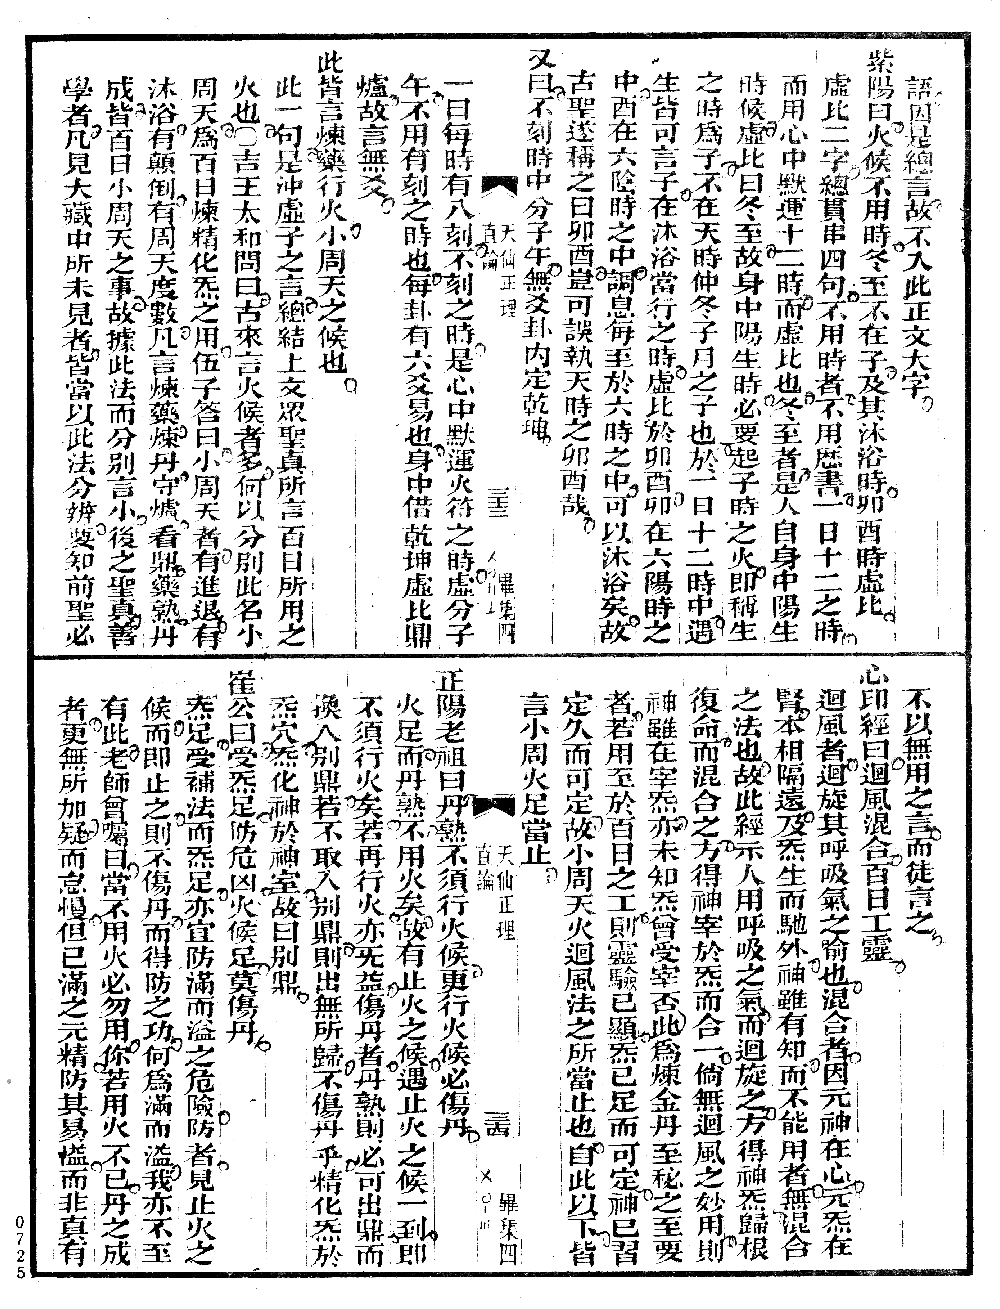 語因是總言故不入此正文大字
紫陽曰火候不用時冬至不在子及其沐浴時卯酉時虛比
虛比二字總貫串四句不用時者不用歷書一日十二之時
而用心中默運十二時而虛比也冬至者是人自身中陽生
時候虛比曰冬至故身中陽生時必要起子時之火即稱生
之時爲子不在天時仲冬子月之子也於一日十二時中遇
生皆可言子在沐浴當行之時虛比於卯酉卯在六陽時之
中酉在六陰時之中調息每至於六時之中可以沐浴矣故
古聖遂稱之曰卯酉豈可誤執天時之卯酉哉
又曰不刻時中分子午無爻卦內定乾坤
天仙正理
直論
三三
畢集四
一日每時有八刻不刻之時是心中默運火符之時虛分子
午不用有刻之時也每卦有六爻易也身中借乾坤虛比鼎
爐故言無爻
此皆言煉藥行火小周天之候也
此一句是沖虛子之言總結上文眾聖真所言百日所用之
火也○吉王太和問曰古來言火候者多何以分別此名小
周天爲百日煉精化炁之用伍子答曰小周天者有進退有
沐浴有顛倒有周天度數凡言煉藥煉丹守爐看鼎藥熟丹
成皆百日小周天之事故據此法而分別言小後之聖真善
學者凡見大藏中所未見者皆當以此法分辨要知前聖必
不以無用之言而徒言之
心印經曰迴風混合百日工靈
迴風者迴旋其呼吸氣之喻也混合者因元神在心元炁在
腎本相隔遠及炁生而馳外神雖有知而不能用者無混合
之法也故此經示人用呼吸之氣而迴旋之方得神炁歸根
復命而混合之方得神宰於炁而合一倘無迴風之妙用則
神雖在宰炁亦未知炁曾受宰否此爲煉金丹至秘之至要
者若用至於百日之工則靈驗已顯炁已足而可定神已習
定久而可定故小周天火迴風法之所當止也自此以下皆
言小周火足當止
天仙正理
直論
三四
畢集四
正陽老祖曰丹熟不須行火候更行火候必傷丹
火足而丹熟不用火矣故有止火之候遇止火之候一到即
不須行火矣若再行火亦旡益傷丹者丹熟則必可出鼎而
換入別鼎若不取入別鼎則出無所歸不傷丹乎精化炁於
炁穴炁化神於神室故曰別鼎
崔公曰受炁足防危凶火候足莫傷丹
炁足受補法而炁足亦宜防滿而溢之危險防者見止火之
候而即止之則不傷丹而得防之功何爲滿而溢我亦不至
有此老師曾囑曰當不用火必勿用你若用火不已丹之成
者更無所加疑而怠慢但已滿之元精防其易溢而非真有
0725